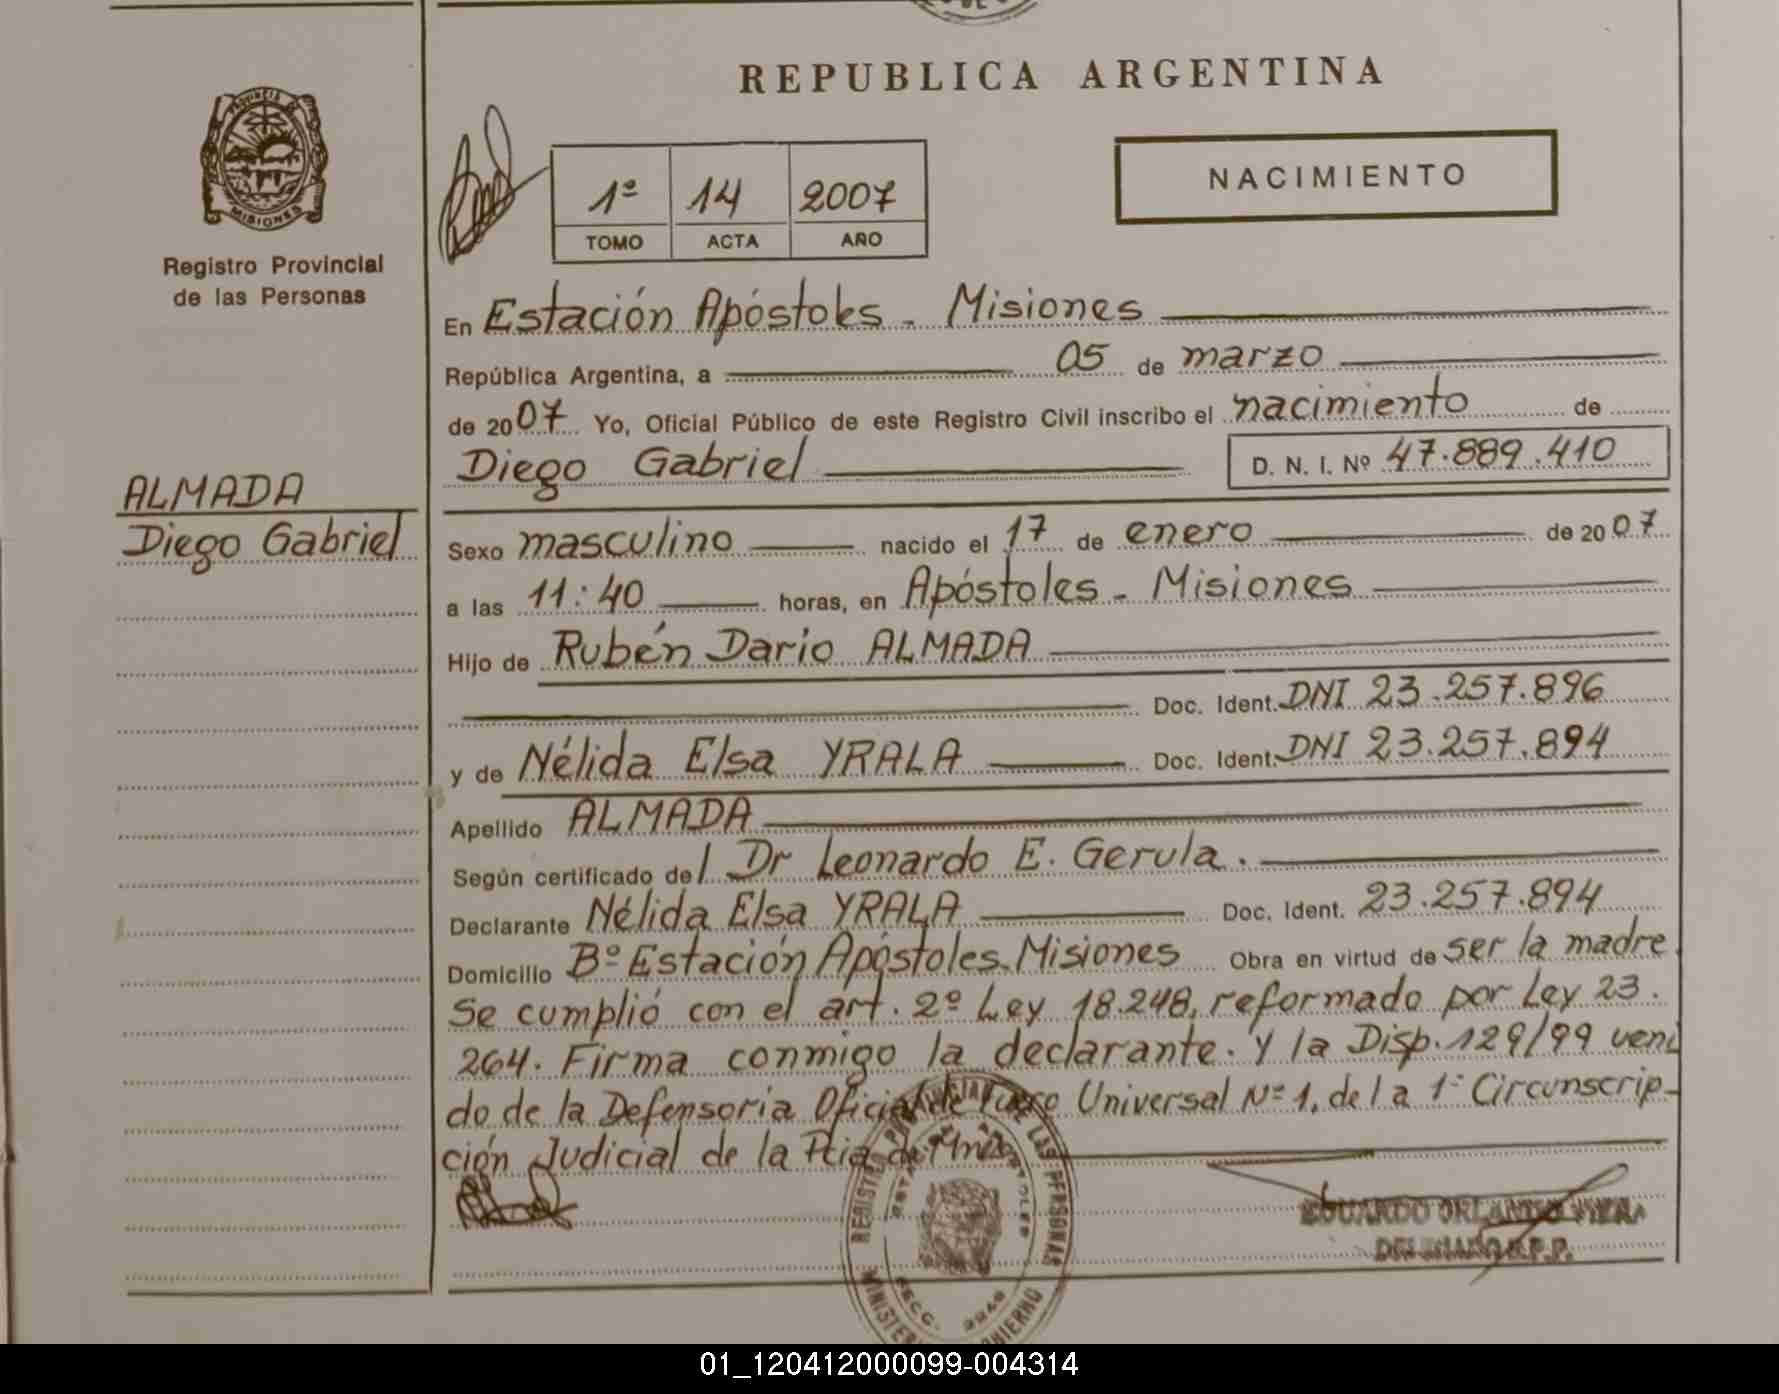 REPUBLICA ARGENTINA
PROVINCIA DE
MISIONES
Registro Provincial
de las Personas
1º 14 2007
TOMO ACTA AÑO
NACIMIENTO
En Estación Apóstoles - Misiones
República Argentina, a 05 de marzo
de 2007 Yo, Oficial Público de este Registro Civil inscribo el nacimiento de
Diego Gabriel D. N. I. Nº 47.889.410
ALMADA
Diego Gabriel
Sexo masculino nacido el 17 de enero de 2007
a las 11:40 horas, en Apóstoles - Misiones
Hijo de Rubén Dario ALMADA
Doc. Ident. DNI 23.257.896
y de Nélida Elsa YRALA Doc. Ident. DNI 23.257.894
Apellido ALMADA
Según certificado del Dr Leonardo E. Gerula.
Declarante Nélida Elsa YRALA Doc. Ident. 23.257.894
Domicilio Bº Estación Apóstoles-Misiones Obra en virtud de ser la madre.
Se cumplió con el art. 2º Ley 18.248, reformado por Ley 23.
264. Firma conmigo la declarante. y la Disp. 129/99 veni
do de la Defensoría Oficial de Fuero Universal Nº 1, de la 1ª Circunscrip-
ción Judicial de la Pcia de Mnes
REGISTRO PROVINCIAL DE LAS PERSONAS
EDUARDO ORLANDO
DELEGADO R.P.P.
01_120412000099-004314